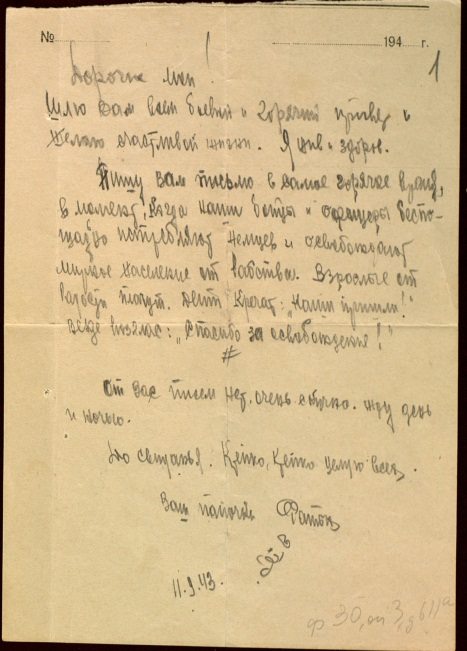 № 194 г.
1
Дорогие мои!
Шлю вам всем боевой и горячий привет и
желаю счастливой жизни. Я жив и здоров.
Пишу вам письмо в самое горячее время,
в момент, когда наши бойцы и офицеры беспо-
щадно истребляют немцев и освобождают
мирное население от рабства. Взрослые от
радости плачут. Дети кричат: „Наши пришли!"
везде возглас: „Спасибо за освобождение!"
#
От вас писем нет, очень скучно. Жду день
и ночью.
До свиданья. Крепко, крепко целую всех.
Ваш папочка
11.9.43.
ф 30, оп 3, д 611а